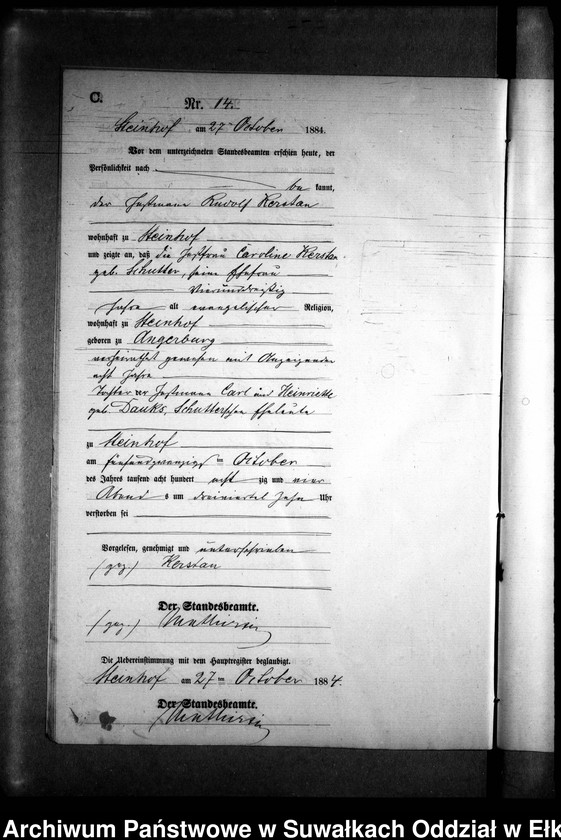 C.
Nr. 14.
Steinhof am 27 October 1884.
Vor dem unterzeichneten Standesbeamten erschien heute, der
Persönlichkeit nach
be kannt,
der Instmann Rudolf Kerstan
wohnhaft zu Steinhof
und zeigte an, daß die Instfrau Caroline Kerstan
geb. Schutter, seine Ehefrau
Vierunddreißig
Jahre alt evangelischer Religion,
wohnhaft zu Steinhof
geboren zu Angerburg
verheirathet gewesen mit Anzeigenden
acht Jahre
Tochter der Instmann Carl und Heinriette
geb. Dauks, Schutterschen Eheleute
zu Steinhof
am fünfundzwanzigs ten October
des Jahres tausend acht hundert acht zig und vier
Abend s um dreiviertel Zehn Uhr
verstorben sei
Vorgelesen, genehmigt und unterschrieben
(gez.) Kerstan
Der Standesbeamte.
(gez.)
Die Uebereinstimmung mit dem Hauptregister beglaubigt.
Steinhof am 27ten October 1884.
Der Standesbeamte.
Archiwum Państwowe w Suwałkach Oddział w Ełk